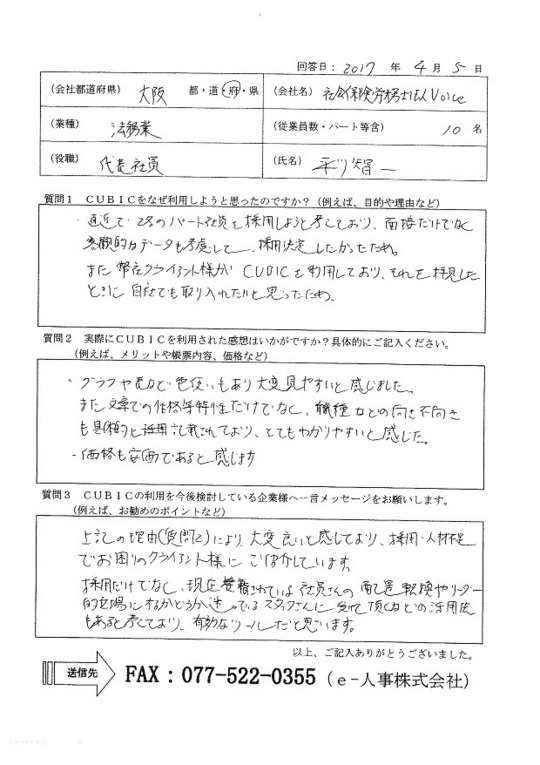 回答日： 2017 年 4 月 5 日
（会社都道府県） 大阪 都・道・府・県 （会社名） 社会保険労務士法人Voice
（業種） 法務業 （従業員数・パート等含） 10 名
（役職） 代表社員 （氏名） 智一
質問１ ＣＵＢＩＣをなぜ利用しようと思ったのですか？（例えば、目的や理由など）
・直近で2名のパート社員を採用しようと考えており、面接だけでなく
客観的なデータも考慮して、採用決定したかったため。
また弊社クライアント様がCUBICを利用しており、それを拝見した
ときに自社でも取り入れたいと思ったため。
質問２ 実際にＣＵＢＩＣを利用された感想はいかがですか？具体的にご記入ください。
（例えば、メリットや帳票内容、価格など）
・グラフや表など色使いもあり大変見やすいと感じました。
また文章での性格等特性だけでなく、職種などの向き不向き
も具体的に記載されており、とてもわかりやすいと感じた。
・価格も安価であると感じます
質問３ ＣＵＢＩＣの利用を今後検討している企業様へ一言メッセージをお願いします。
（例えば、お勧めのポイントなど）
上記の理由(質問2)により、大変良いと感じており、採用・人材不足
でお困りのクライアント様にご紹介しています。
採用だけでなく、現在 されている社員さんの配置転換やリーダー
的立場にするかどうか迷っているスタッフさんに受けて頂くなどの活用法
もあると考えており、有効なツールだと思います。
以上、ご記入ありがとうございました。
送信先 FAX：077-522-0355（ｅ-人事株式会社）